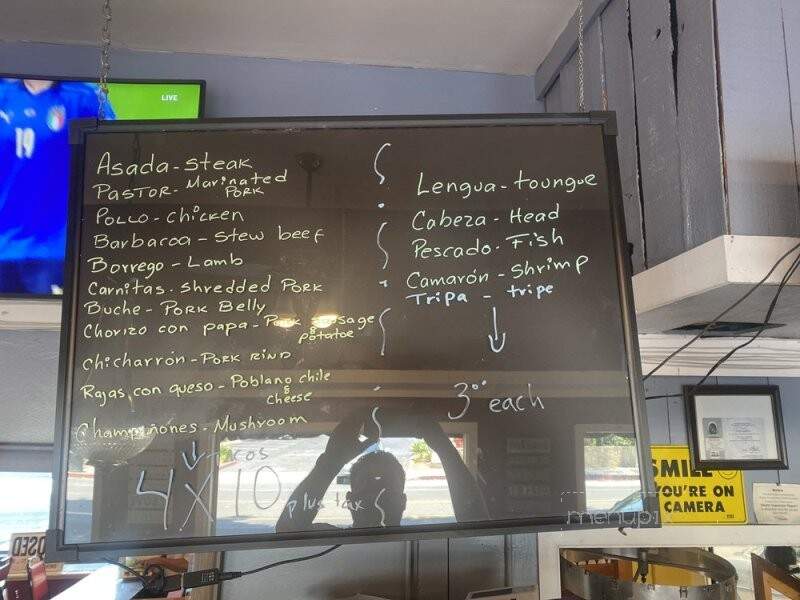 LIVE
19
Asada - steak
PASTOR - Marinated
PORK
POLLO - chicken
Barbacoa - Stew beef
Borrego - Lamb
Carnitas. shredded PORK
Buche - PORK Belly
Chorizo con papa - Pork sausage
&
potatoe
Chicharrón - PORK RIND
Rajas con queso - Poblano chile
&
cheese
Champiñones - Mushroom
tacos
4 X 10 plus tax
Lengua - toungue
Cabeza - Head
Pescado - Fish
Camarón - Shrimp
Tripa - tripe
3.00 each
SMILE
YOU'RE ON
CAMERA
CLOSED
menupix